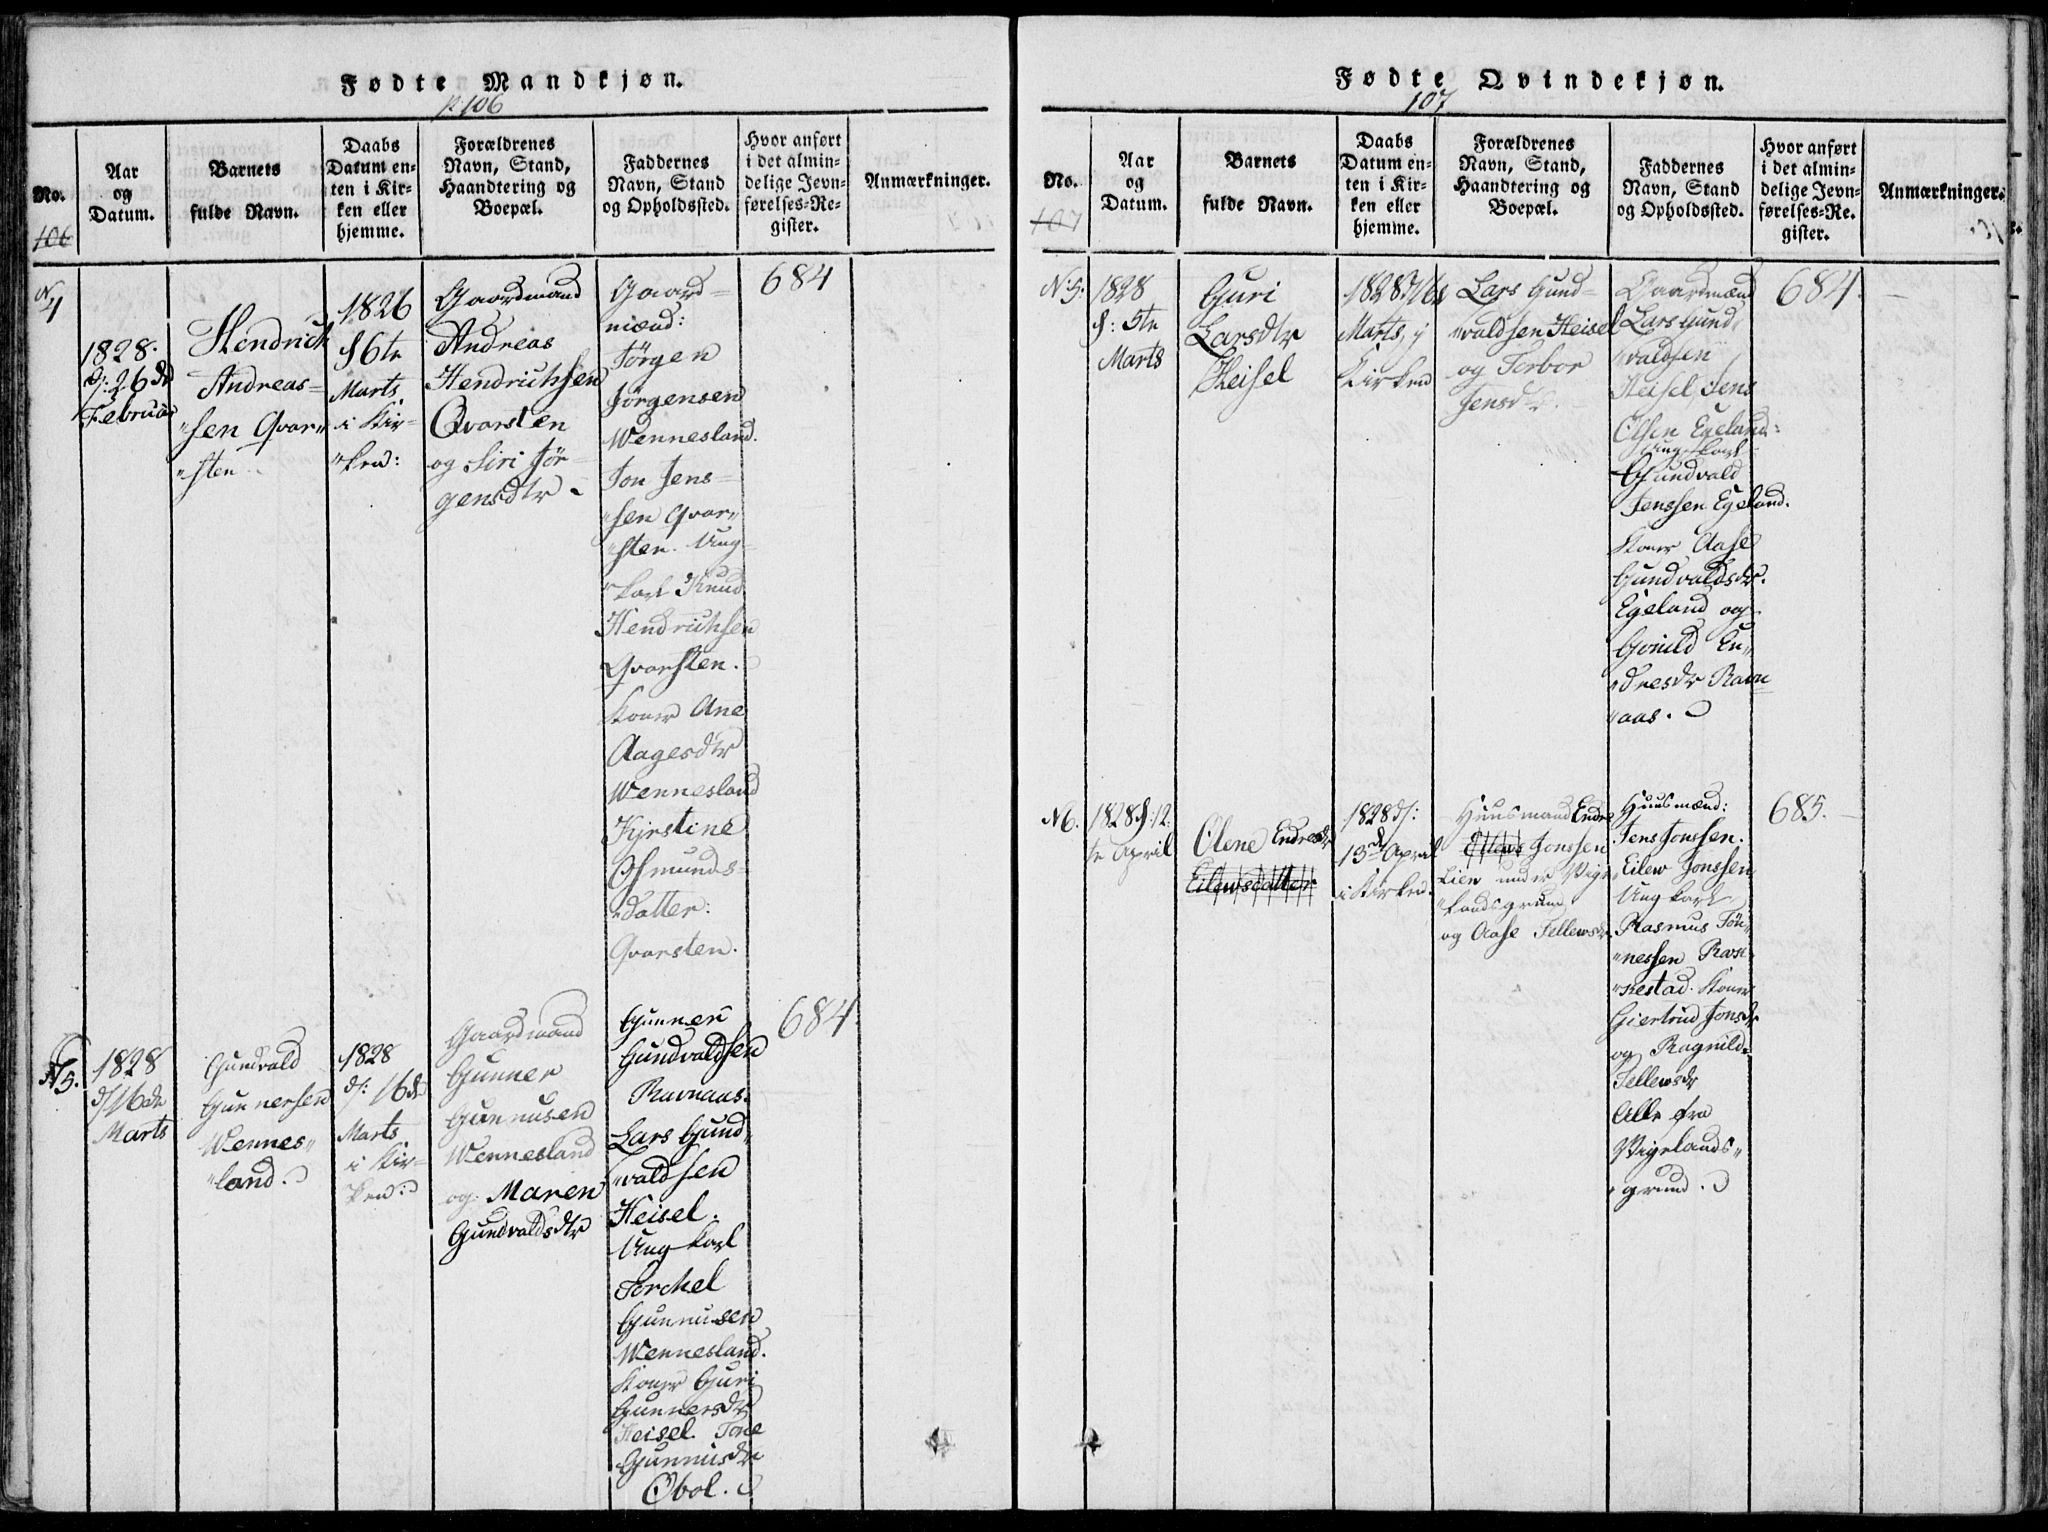 Fødte Mandkjøn.
p. 106
No.
106
Aar
og
Datum.
Barnets
fulde Navn.
Daabs
Datum en-
ten i Kir-
ken eller
hjemme.
Forældrenes
Navn, Stand,
Haandtering og
Boepæl.
Faddernes
Navn, Stand
og Opholdssted.
Hvor anført
i det almin-
delige Jevn-
førelses-Re-
gister.
Anmærkninger.
N 4
1828.
d: 26de
Februar
Hendrich
Andreas-
sen Qvar-
sten
1826
d 6te
Marts
i Kir-
ken:
Gaardmand
Andreas
Hendrichsen
Qvarsten
og Siri Jör-
gensdtr
Gaard-
mænd:
Jörgen
Jörgensen
Wennesland.
Jon Jens-
sen Qvar-
sten. Ung-
karl Knud
Hendrichsen
Qvarsten.
Koner Ane
Aagesdtr
Wennesland
Kjrstine
Osmunds-
datter:
Qvarsten.
684
N 5.
1828
d 16de
Marts
Gundvald
Gunnersen
Wennes-
land.
1828
d: 16de
Marts
i Kir-
ken:
Gaardmand
Gunner
Gunnusen
Wennesland
og Maren
Gundvaldsdtr
Gunner
Gundvaldsen
Ravnaas.
Lars Gund-
valdsen
Heisel.
Ungkarl
Torchel
Gunnusen
Wennesland.
Koner Guri
Gunnersdtr
Heisel. Tone
Gunnusdtr
Øbol.
684.
Fødte Qvindekjøn.
107
No.
107
Aar
og
Datum.
Barnets
fulde Navn.
Daabs
Datum en-
ten i Kir-
ken eller
hjemme.
Forældrenes
Navn, Stand,
Haandtering og
Boepæl.
Faddernes
Navn, Stand
og Opholdssted.
Hvor anført
i det almin-
delige Jevn-
førelses-Re-
gister.
Anmærkninger.
N: 5:
1828
d: 5te
Marts
Guri
Larsdtr
Heisel
1828 d 16de
Marts, i
Kirken
Lars Gund-
valdsen Heisel
og Torbor
Jensdtr.
Gaardmænd
Lars Gund-
valdsen
Heisel, Jens
Olsen Egeland:
Ungkarl
Gundvald
Jenssen Egeland.
Koner Aase
Gundvaldsdr.
Egeland og
Gonild En-
dresdr Ravn-
aas.
684.
N 6.
1828 d: 12
te April
Olene Endresdr
Eilewsdatter
1828 d:
13de April
i Kirken.
Huusmand Endre
Eilews Jonssen
Lien under Vige-
landsgrund
og Aase Tellewsdr
Huusmænd:
Jens Jonssen.
Eilew Jonssen
Ungkarl
Rasmus Tön-
nessen Rosse-
kestad. Koner
Giertrud Jonsdr
og Ragnild
Tellewsdr
Alle fra
Vigelands-
grund.
685.